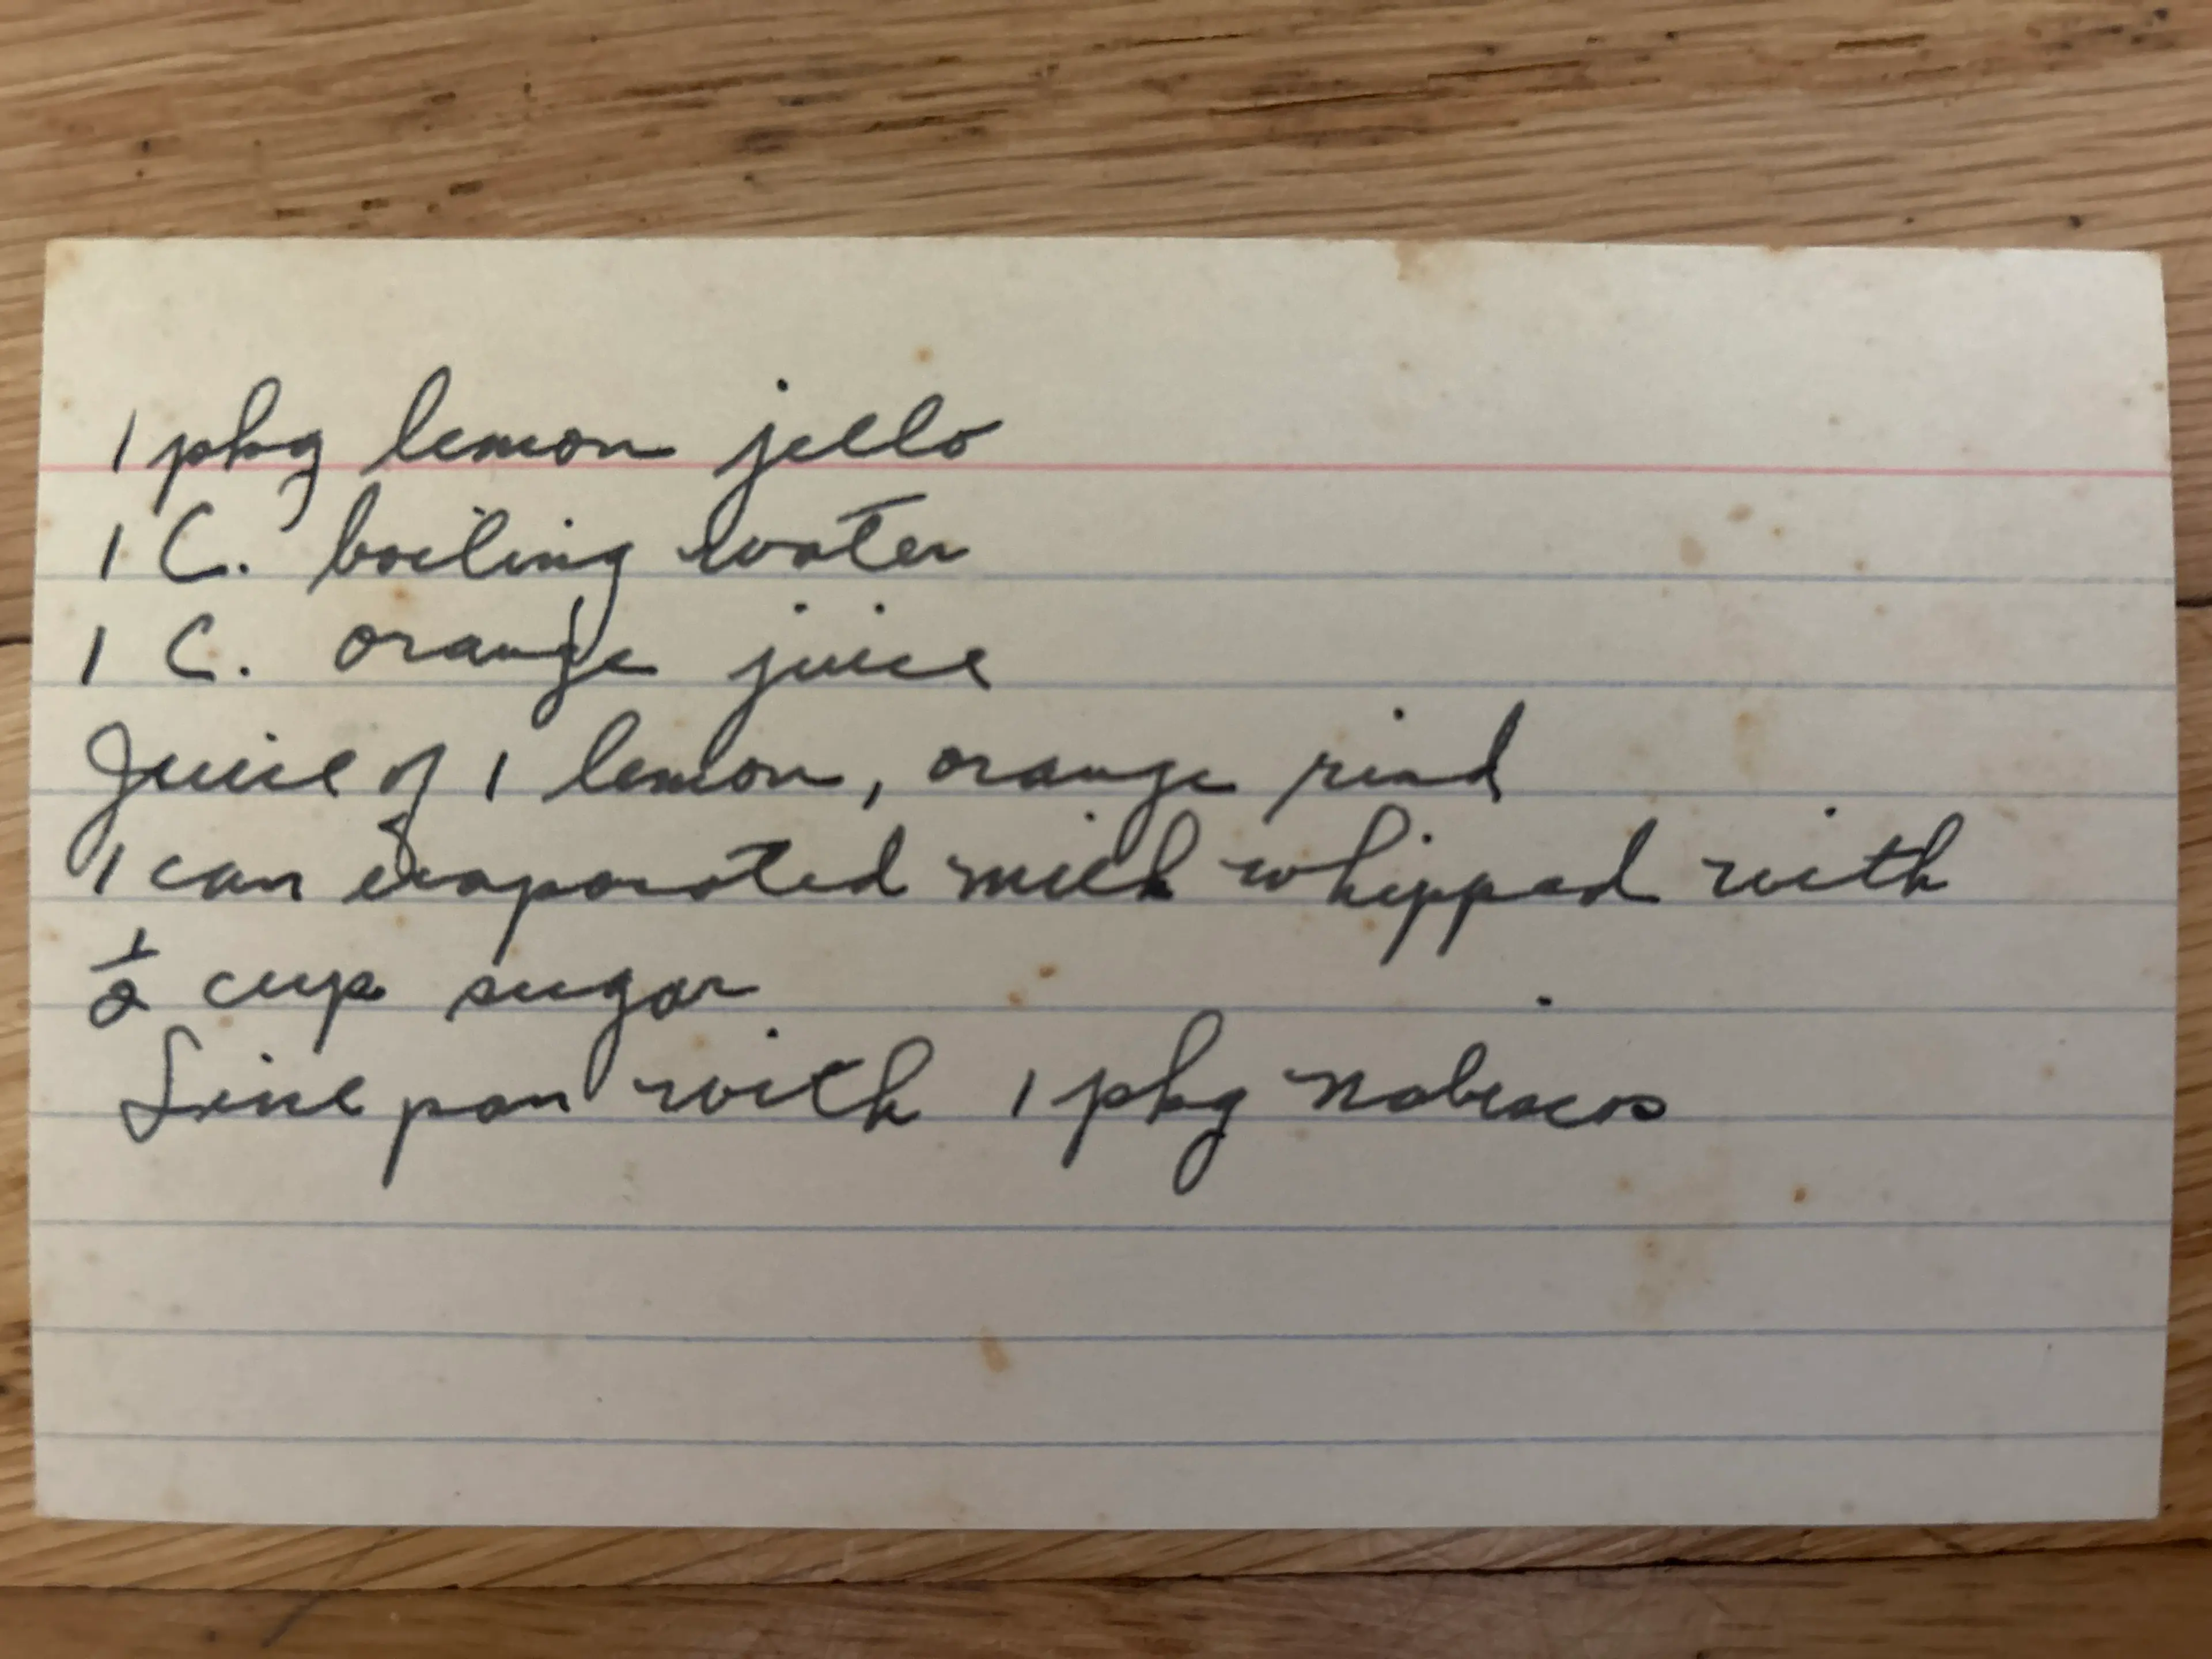 1 pkg lemon jello
1 C. boiling water
1 C. orange juice
Juice of 1 lemon, orange rind
1 can evaporated milk whipped with
1/2 cup sugar
Line pan with 1 pkg nabiscos